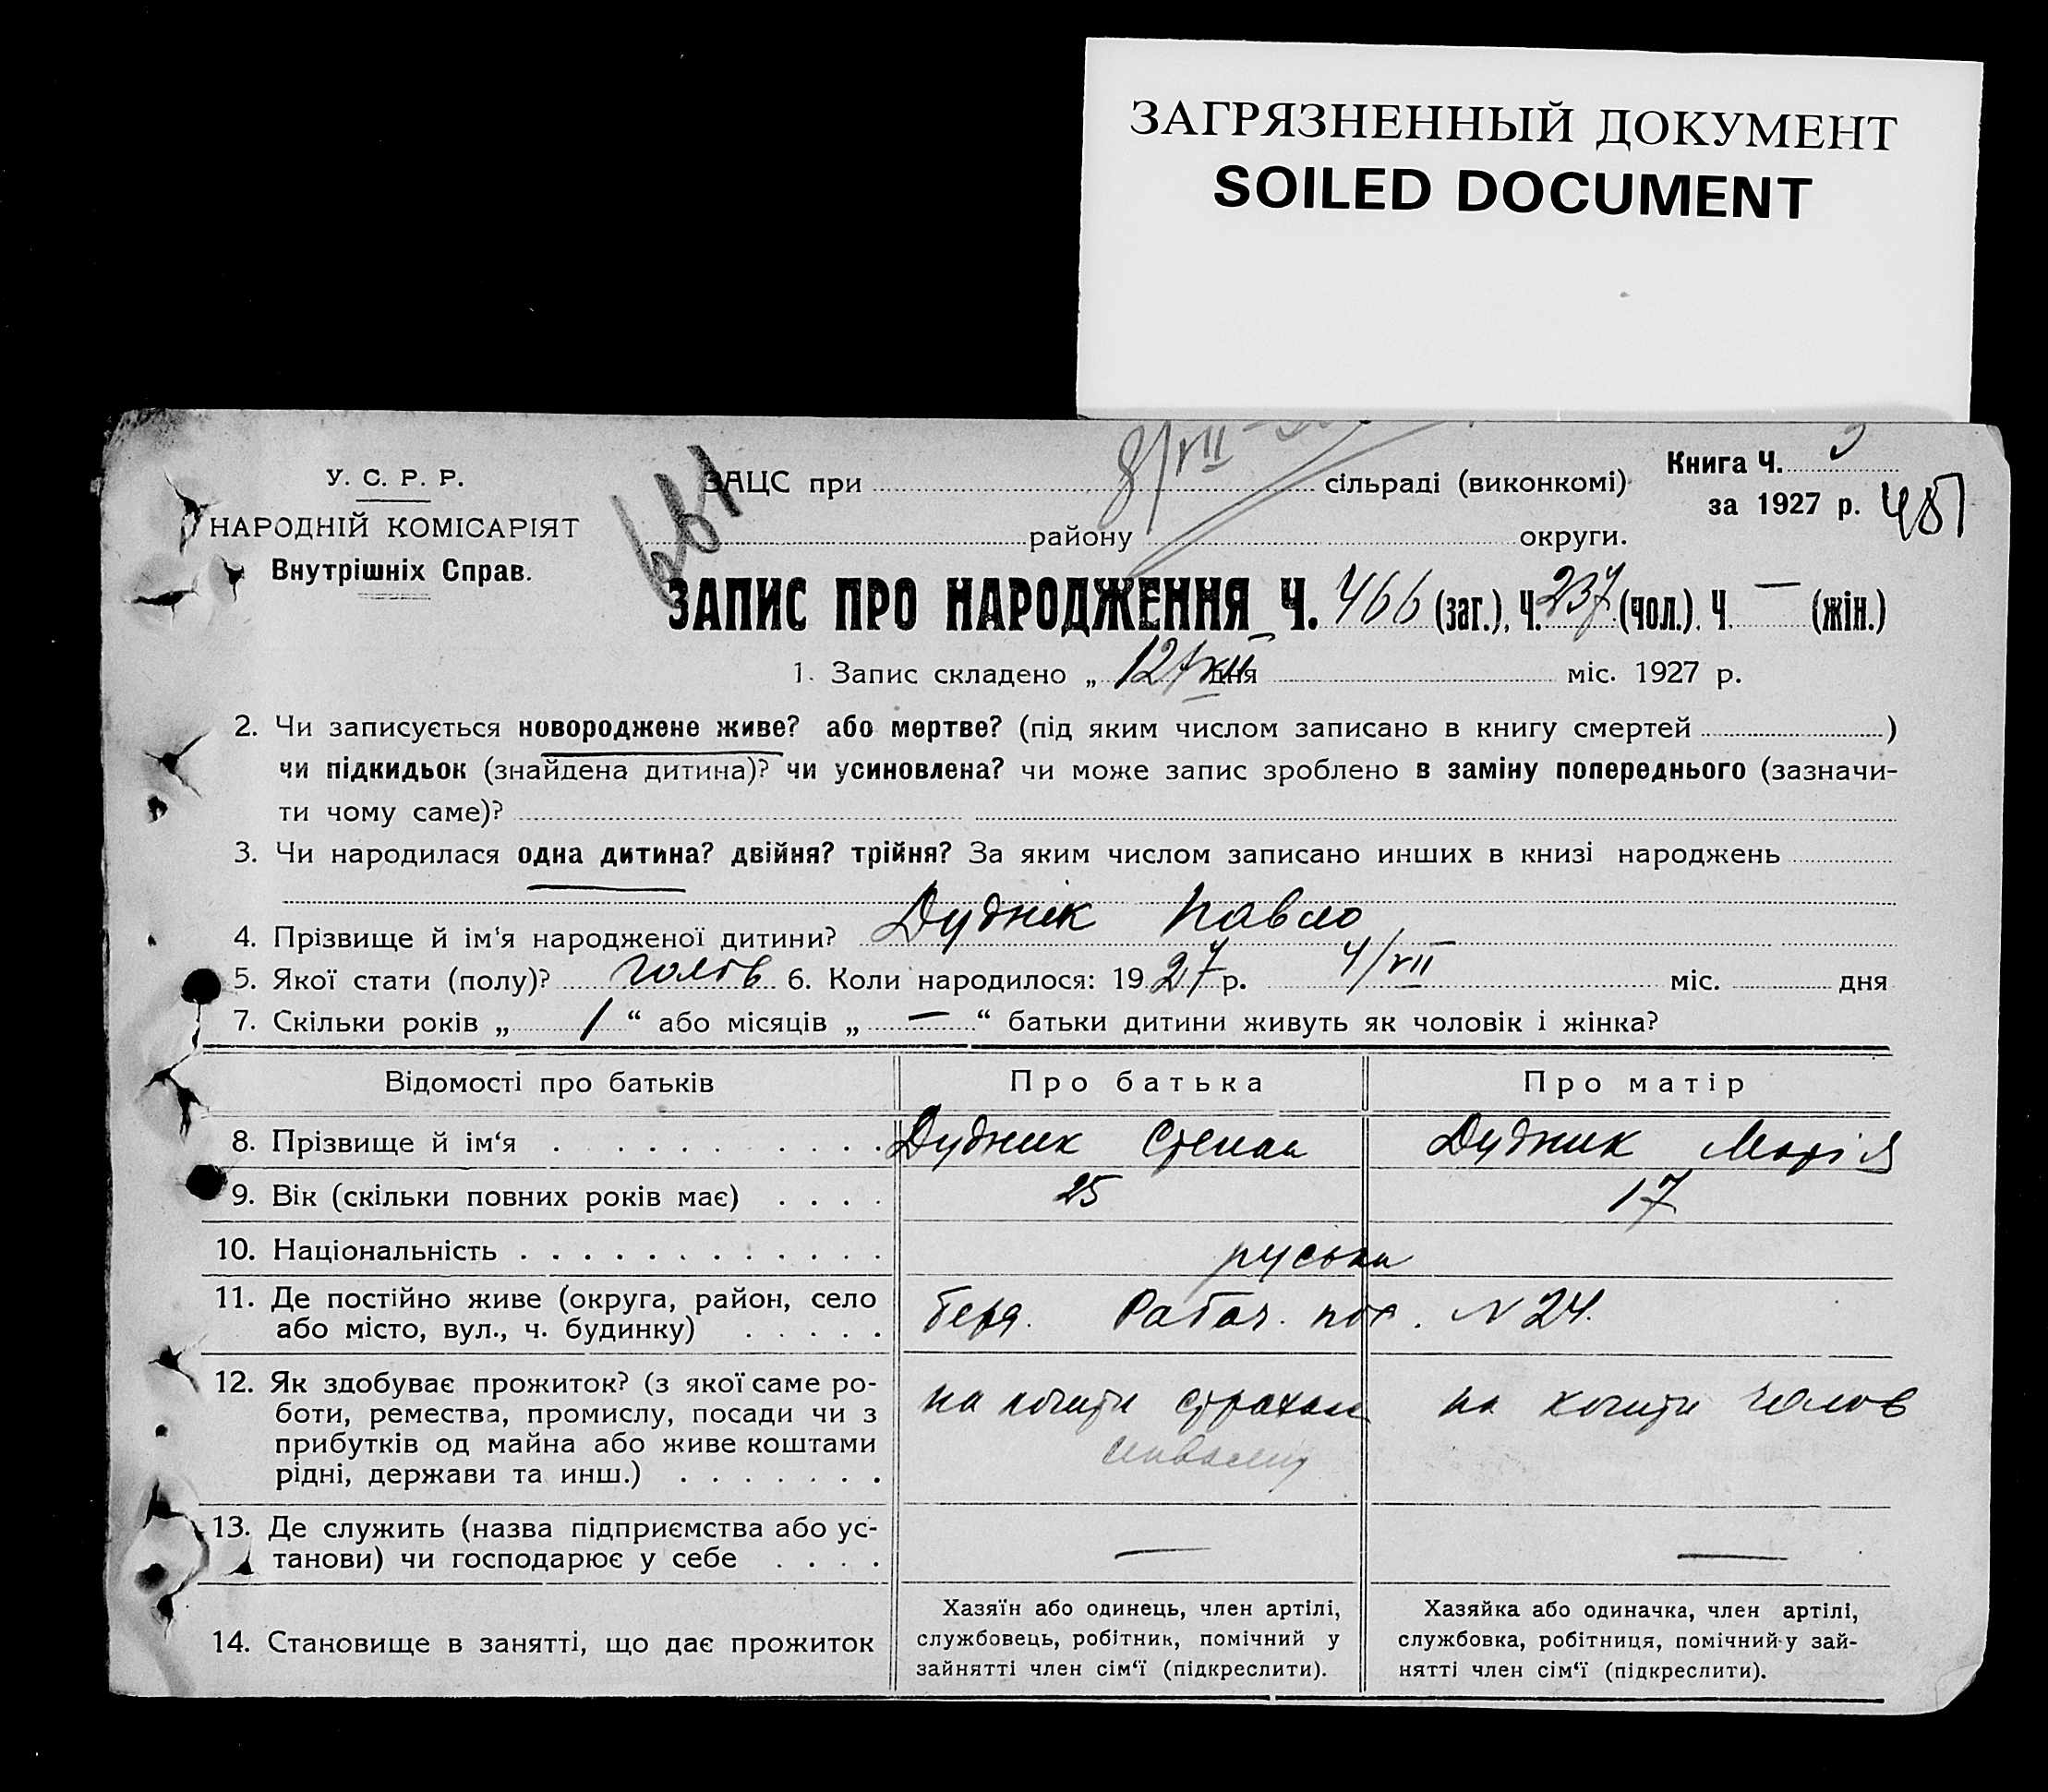 ЗАГРЯЗНЕННЫЙ ДОКУМЕНТ
SOILED DOCUMENT
У. С. Р. Р.
НАРОДНІЙ КОМІСАРІЯТ
Внутрішніх Справ.
ЗАЦС при сільраді (виконкомі)
району округи.
8/VII
Книга Ч.
за 1927 р.
451
ЗАПИС ПРО НАРОДЖЕННЯ Ч. 466 (заг.), Ч. 237 (чол.). Ч. — (жін.)
1. Запис складено „ 12/VII дня міс. 1927 р.
2. Чи записується новороджене живе? або мертве? (під яким числом записано в книгу смертей )
чи підкидьок (знайдена дитина)? чи усиновлена? чи може запис зроблено в заміну попереднього (зазначи-
ти чому саме)?
3. Чи народилася одна дитина? двійня? трійня? За яким числом записано инших в книзі народжень
4. Прізвище й ім'я народженої дитини? Дуднік Павло
5. Якої стати (полу)? чолов 6. Коли народилося: 1927 р. 4/VII міс. дня
7. Скільки років „ 1 “ або місяців „ — “ батьки дитини живуть як чоловік і жінка?
Відомості про батьків Про батька Про матір
8. Прізвище й ім'я Дудник Степан Дудник Марія
9. Вік (скільки повних років має) 25 17
10. Національність руськи
11. Де постійно живе (округа, район, село
або місто, вул., ч. будинку)
Берд. Рабоч. пос. N 24.
12. Як здобуває прожиток? (з якої саме ро-
боти, ремества, промислу, посади чи з
прибутків од майна або живе коштами
рідні, держави та инш.)
на кошти страхкас на кошти чолов
13. Де служить (назва підприємства або ус-
танови) чи господарює у себе — —
14. Становище в занятті, що дає прожиток
Хазяїн або одинець, член артілі,
службовець, робітник, помічний у
зайнятті член сім'ї (підкреслити).
Хазяйка або одиначка, член артілі,
службовка, робітниця, помічний у зай-
нятті член сім'ї (підкреслити).